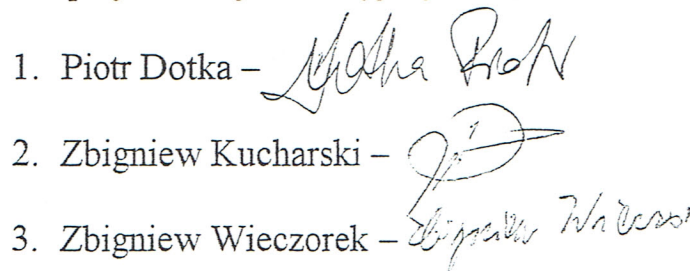 1. Piotr Dotka – Dotka Piotr
2. Zbigniew Kucharski –
3. Zbigniew Wieczorek – Zbigniew